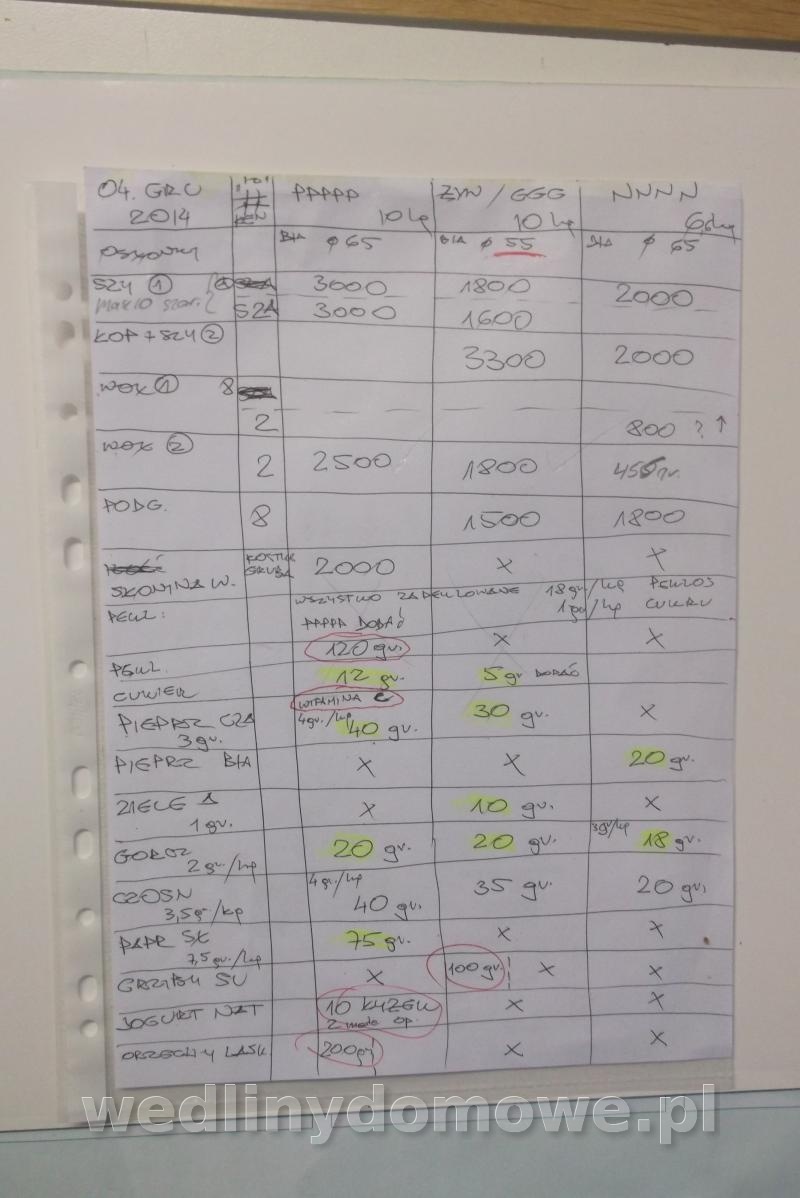 04. GRU 2014 PPPPP 10 kg ŻYW / GGG 10 kg NNNN
OSŁONKI BIA φ 65 BIA φ 55 BIA φ 65
SZY ① 3000 1800 2000
SZA 3000 1600
KOP + SZY ② 3300 2000
WOŁ ① 8
2 800 ? ↑
WOŁ ② 2 2500 1800
PODG. 8 1500 1800
SŁONINA W. KOSTKA GRUBA 2000 X X
PEKL: WSZYSTKO ZAPEKLOWANE 18 gr/kg PEKLOS
1 gr/kg CUKRU
PPPPP DODAĆ
120 gr. X X
PEKL.
CUKIER 12 gr. 5 gr DODAĆ
WITAMINA C
PIEPRZ CZA 3 gr. 4 gr./kg 40 gr. 30 gr. X
PIEPRZ BIA X X 20 gr.
ZIELE A 1 gr. X 10 gr. X
GORCZ 2 gr/kg 20 gr. 20 gr. 3 gr/kg 18 gr.
CZOSN 3,5 gr/kg 4 gr/kg 40 gr. 35 gr. 20 gr.
PAPR SŁ 7,5 gr./kg 75 gr. X X
GRZYBY SU X 100 gr. X X
JOGURT NAT 10 ŁYŻEK X X
2 małe op.
ORZECHY LASK. 200 gr X X
wedlinydomowe.pl